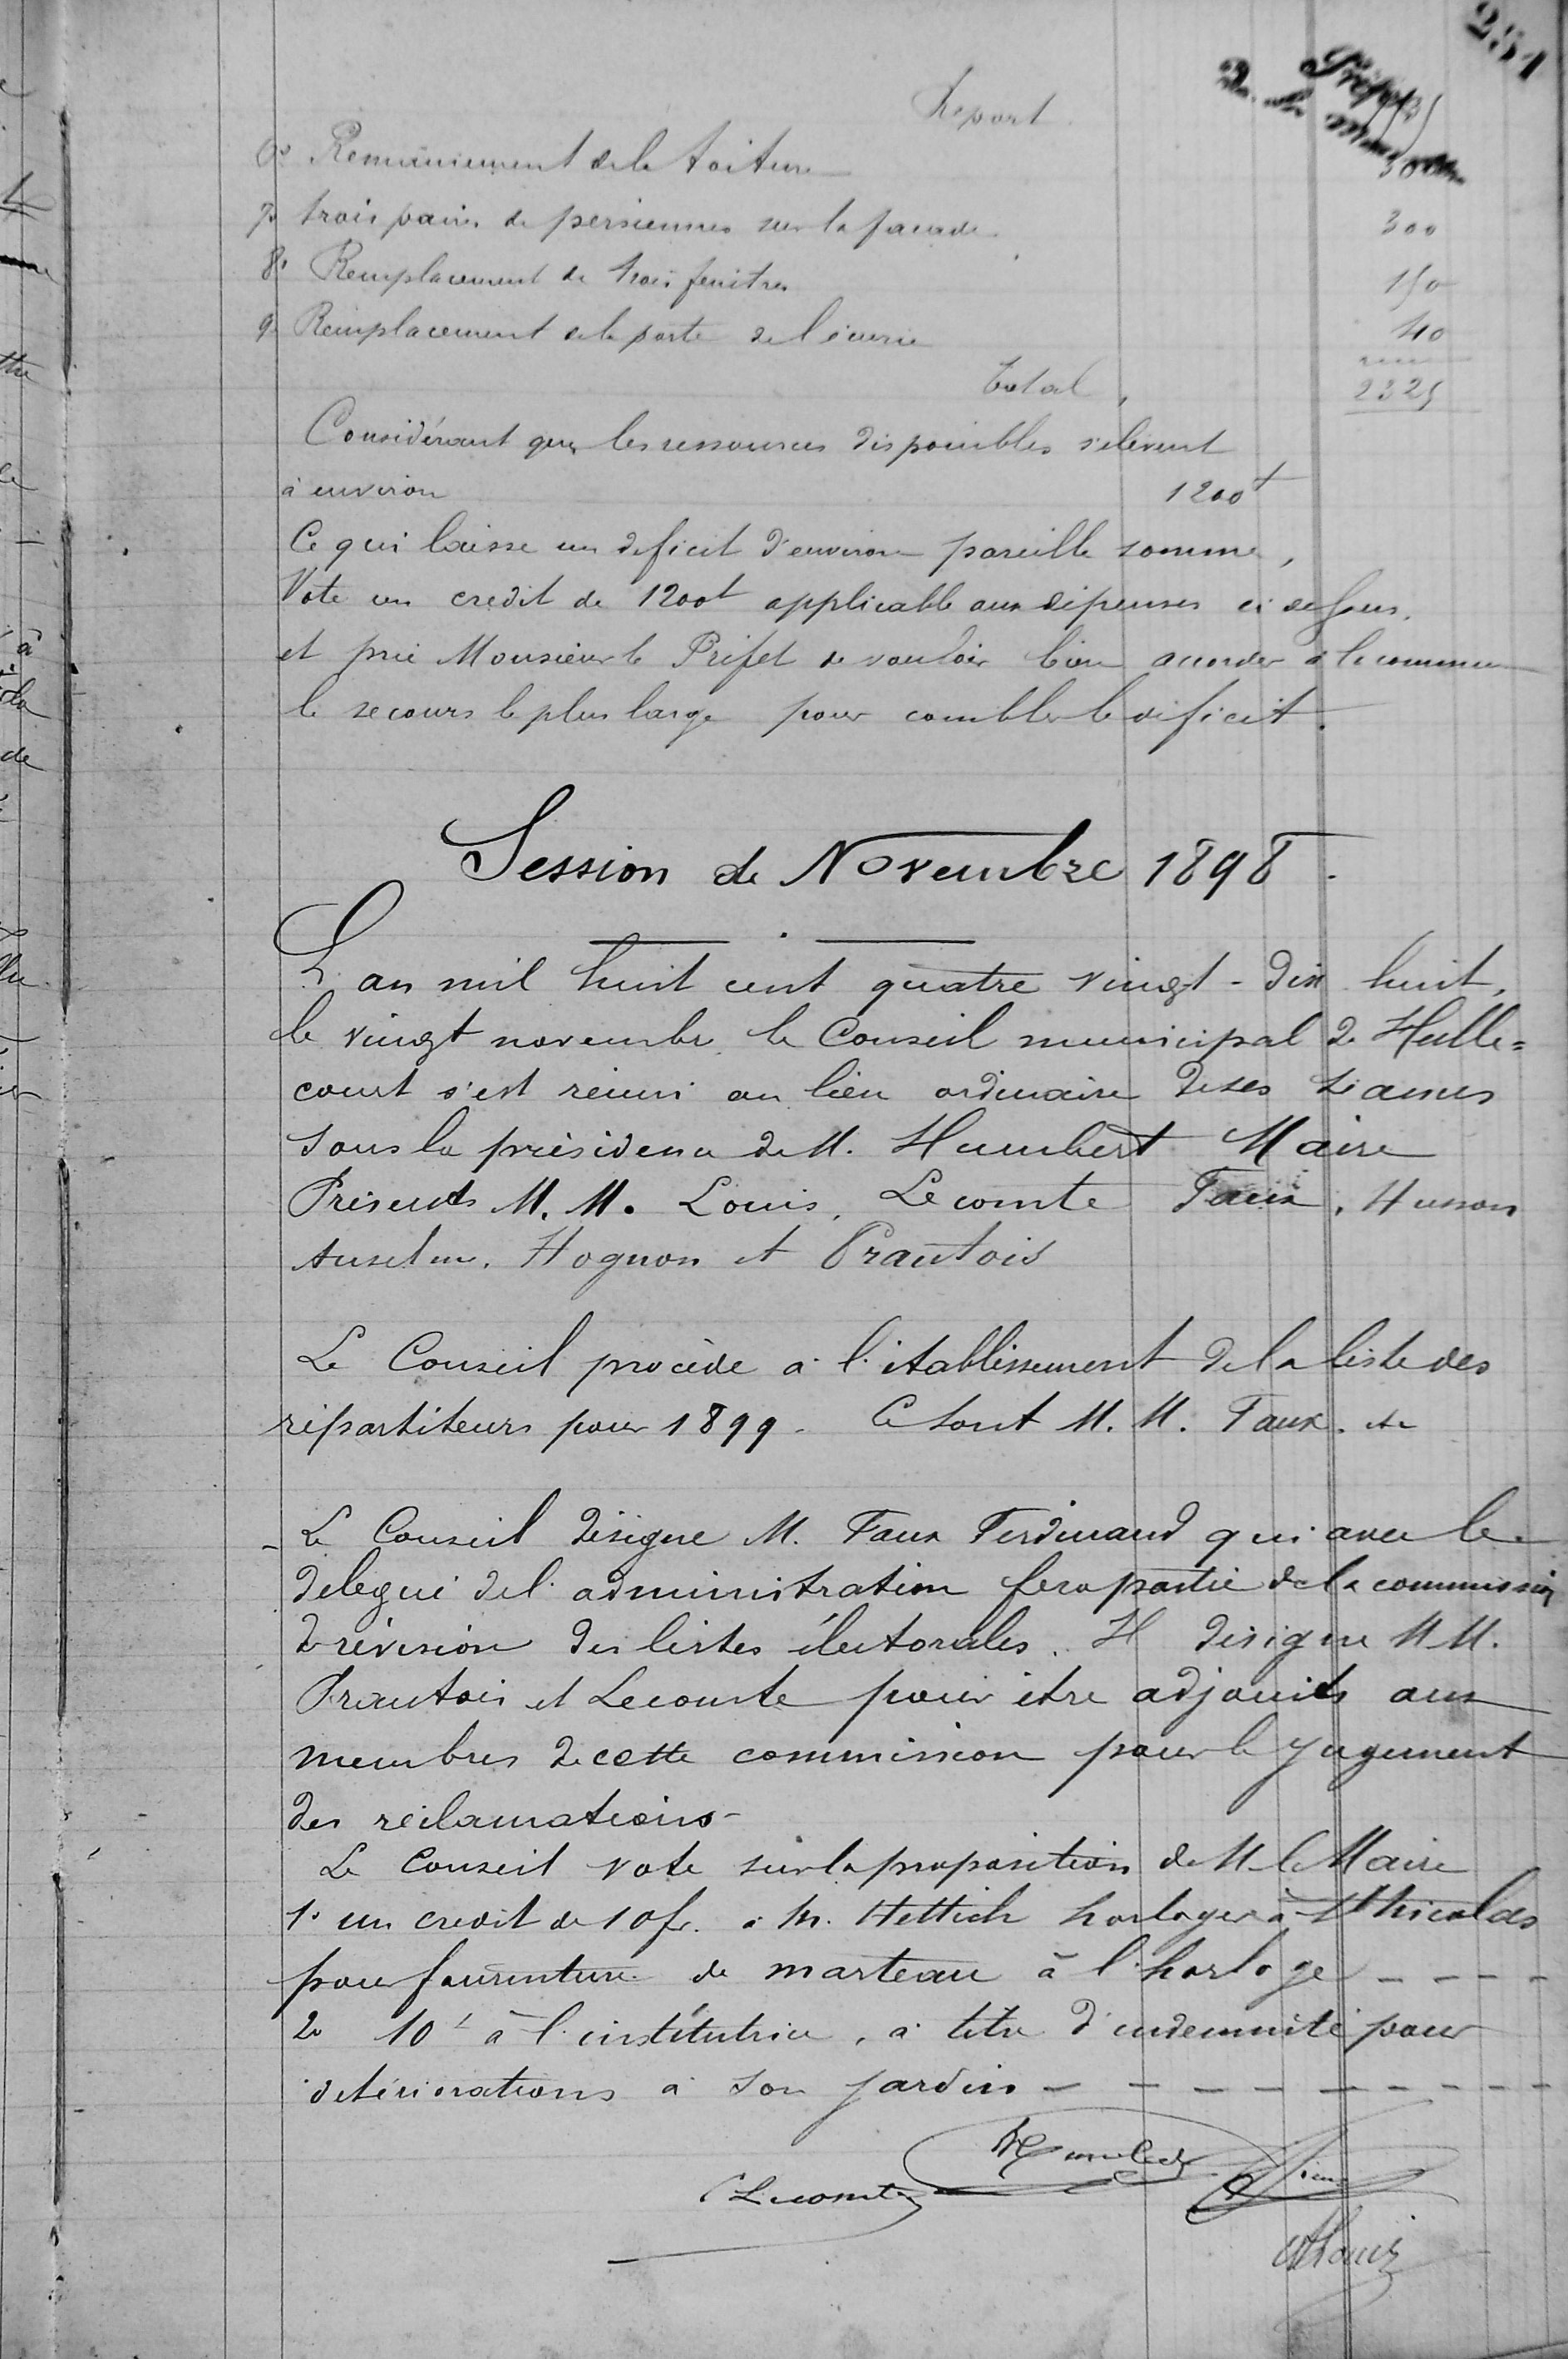 251
Préfect
Report
6° Remaniement de la toiture
7° trois paires de persiennes sur la façade 300
8° Remplacement de trois fenêtres 150
9° Remplacement de la porte de l'écurie 40
Total 2325
Considérant que les ressources disponibles s'élèvent
à environ 1200f
Ce qui laisse un deficit d'environ pareille somme,
Vote un credit de 1200f applicable aux dépenses ci dessus,
et prie Monsieur le Préfet de vouloir bien accorder à la commune
le secours le plus large pour combler le deficit.
Session de Novembre 1898.
L'an mil huit cent quatre vingt-dix huit,
le vingt novembre, le Conseil municipal de Hulle=
court s'est réuni au lieu ordinaire de ses séances
sous la présidence de M. Humbert Maire
Présents M. M. Louis, Lecomte Faux, Husson
Anselme, Hognon et Prautois
Le Conseil procède à l'établissement de la liste des
répartiteurs pour 1899. Ce sont M. M. Faux. etc
Le Conseil désigne M. Faux Ferdinand qui avec le
délégué de l'administration fera partie de la commission
de révision des listes électorales. Il désigne MM.
Prautois et Lecomte pour être adjoints aux
membres de cette commission pour le jugement
des réclamations-
Le Conseil vote sur la proposition de M le Maire
1° un credit de 10f. à M. Hettich horloger à St Nicolas
pour fourniture de marteau à l'horloge - - - -
2° 10f à l'institutrice, à titre d'indemnité pour
détériorations à son jardin - - - - - - - - -
Humbert
CLecomte
Louis